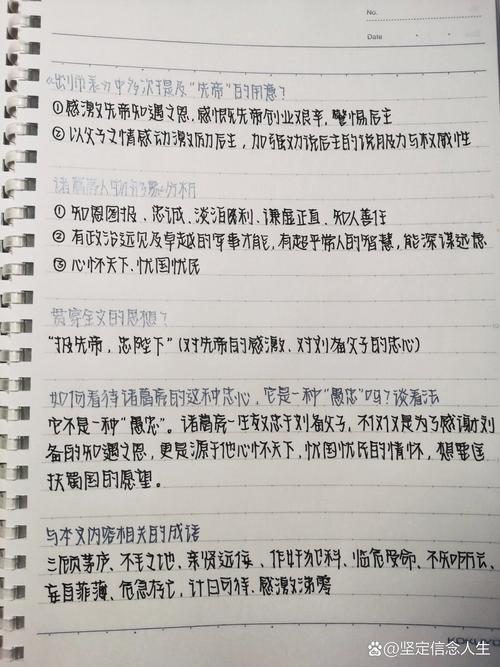 No.
Date
《出师表》中多次提及“先帝”的用意？
①感激先帝知遇之恩，感慨先帝创业艰辛，警惕后主
②以父子之情感动激励后主，加强劝说后主的说服力与权威性
诸葛亮人物形象分析
①知恩图报、忠诚、淡泊名利、谦虚正直、知人善任
②有政治远见及卓越的军事才能，有超乎常人的智慧，能深谋远虑
③心怀天下、忧国忧民
贯穿全文的思想？
“报先帝，忠陛下”（对先帝的感激、对刘备父子的忠心）
如何看待诸葛亮的这种忠心，它是一种“愚忠”吗？谈看法
它不是一种“愚忠”。诸葛亮一生效忠于刘备父子，不仅仅是为了感谢刘
备的知遇之恩，更是源于他心怀天下，忧国忧民的情怀，想要匡
扶蜀国的愿望。
与本文内容相关的成语
三顾茅庐、不毛之地、亲贤远佞、作奸犯科、临危受命、不知所云、
妄自菲薄、危急存亡、计日可待、感激涕零
@坚定信念人生